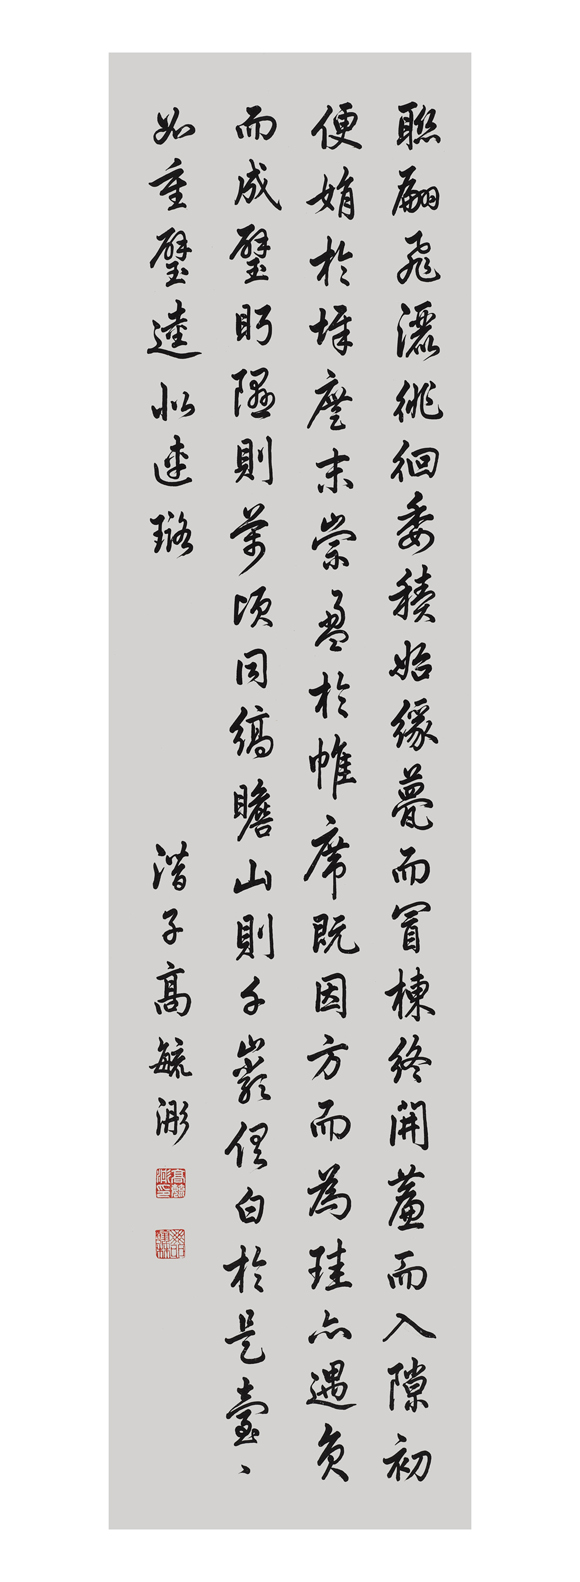 聯翩飛灑徘徊委積始緣甍而冒棟終開簾而入隙初
便娟於墀廡末縈盈於帷席既因方而為珪亦遇員
而成璧眄隰則萬頃同縞瞻山則千巖俱白於是臺、
如重璧逵似連璐
潛子高毓浵
高毓浵印